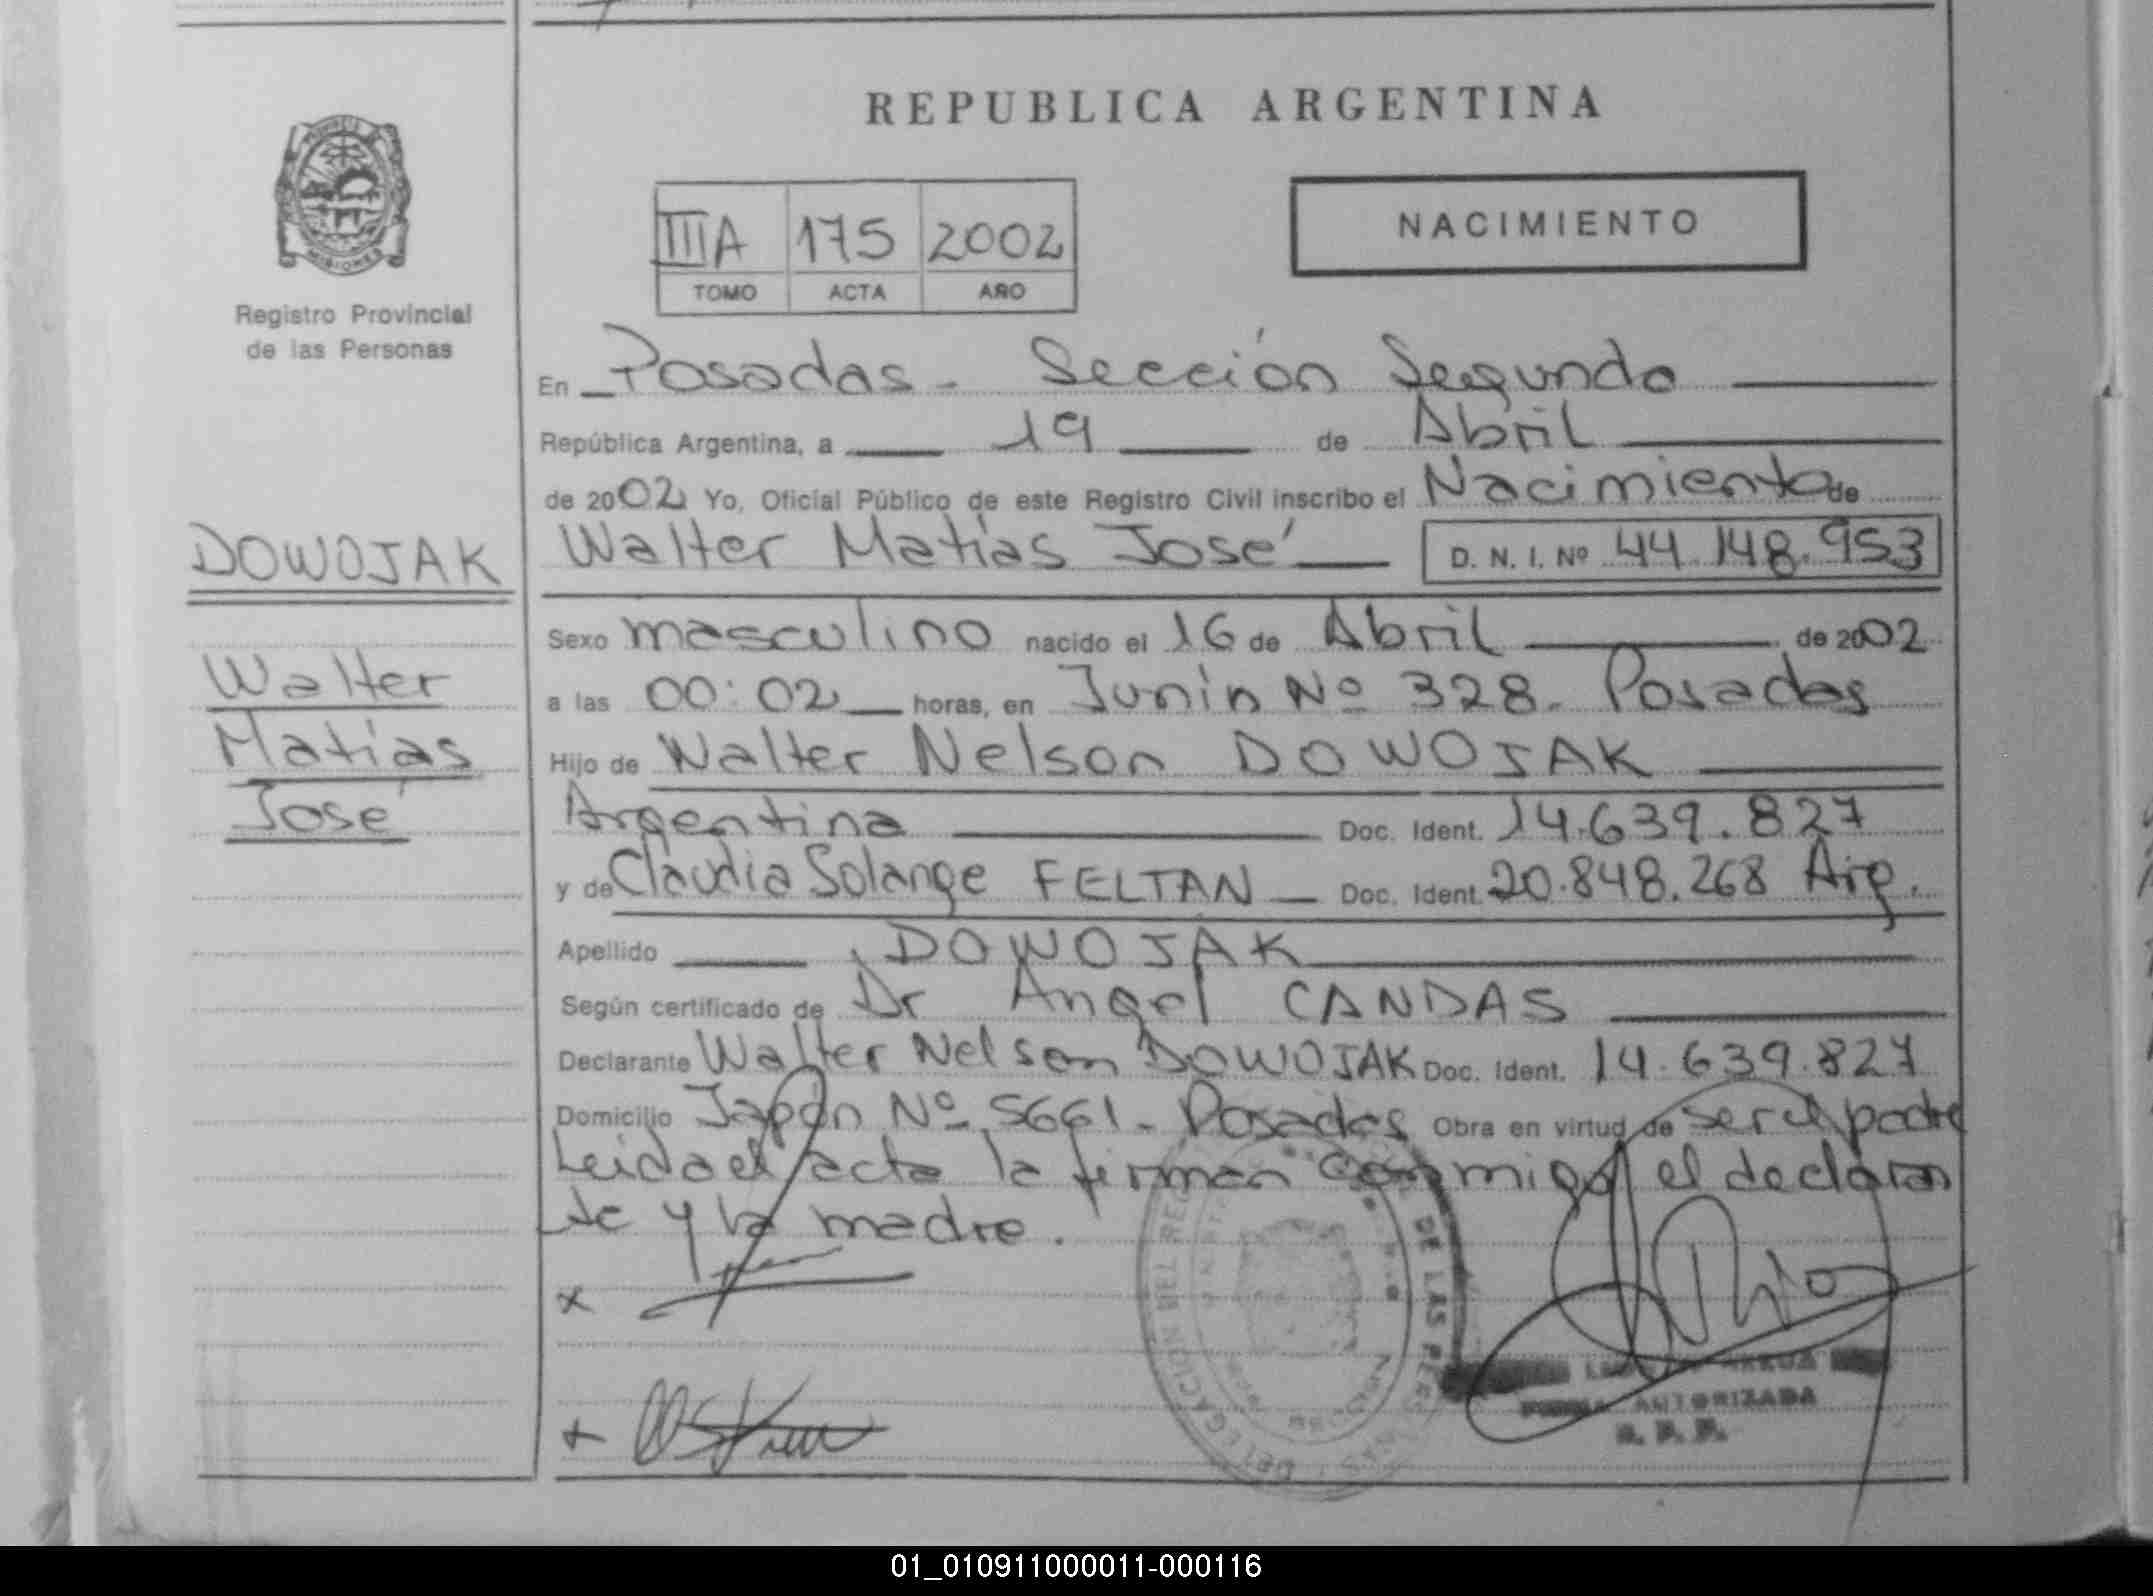 REPUBLICA ARGENTINA
NACIMIENTO
IIIA 175 2002
TOMO ACTA AÑO
MISIONES
Registro Provincial
de las Personas
En Posadas - Sección Segunda
República Argentina, a 19 de Abril
de 2002 Yo, Oficial Público de este Registro Civil inscribo el Nacimiento de
DOWOJAK
Walter Matías José D. N. I. Nº 44.148.953
Sexo masculino nacido el 16 de Abril de 2002
Walter
a las 00:02 horas, en Junín Nº 328. Posadas
Matías
Hijo de Walter Nelson DOWOJAK
José
Argentina Doc. Ident. 14.639.827
y de Claudia Solange FELTAN Doc. Ident. 20.848.268 Arg.
Apellido DOWOJAK
Según certificado de Dr Angel CANDAS
Declarante Walter Nelson DOWOJAK Doc. Ident. 14.639.827
Domicilio Japón Nº 5661 - Posadas Obra en virtud de ser el padre
Leida el acta la firman conmigo el declaran
te y la madre.
x
x
DELEGACION DEL DE LAS
FIRMA AUTORIZADA
01_010911000011-000116